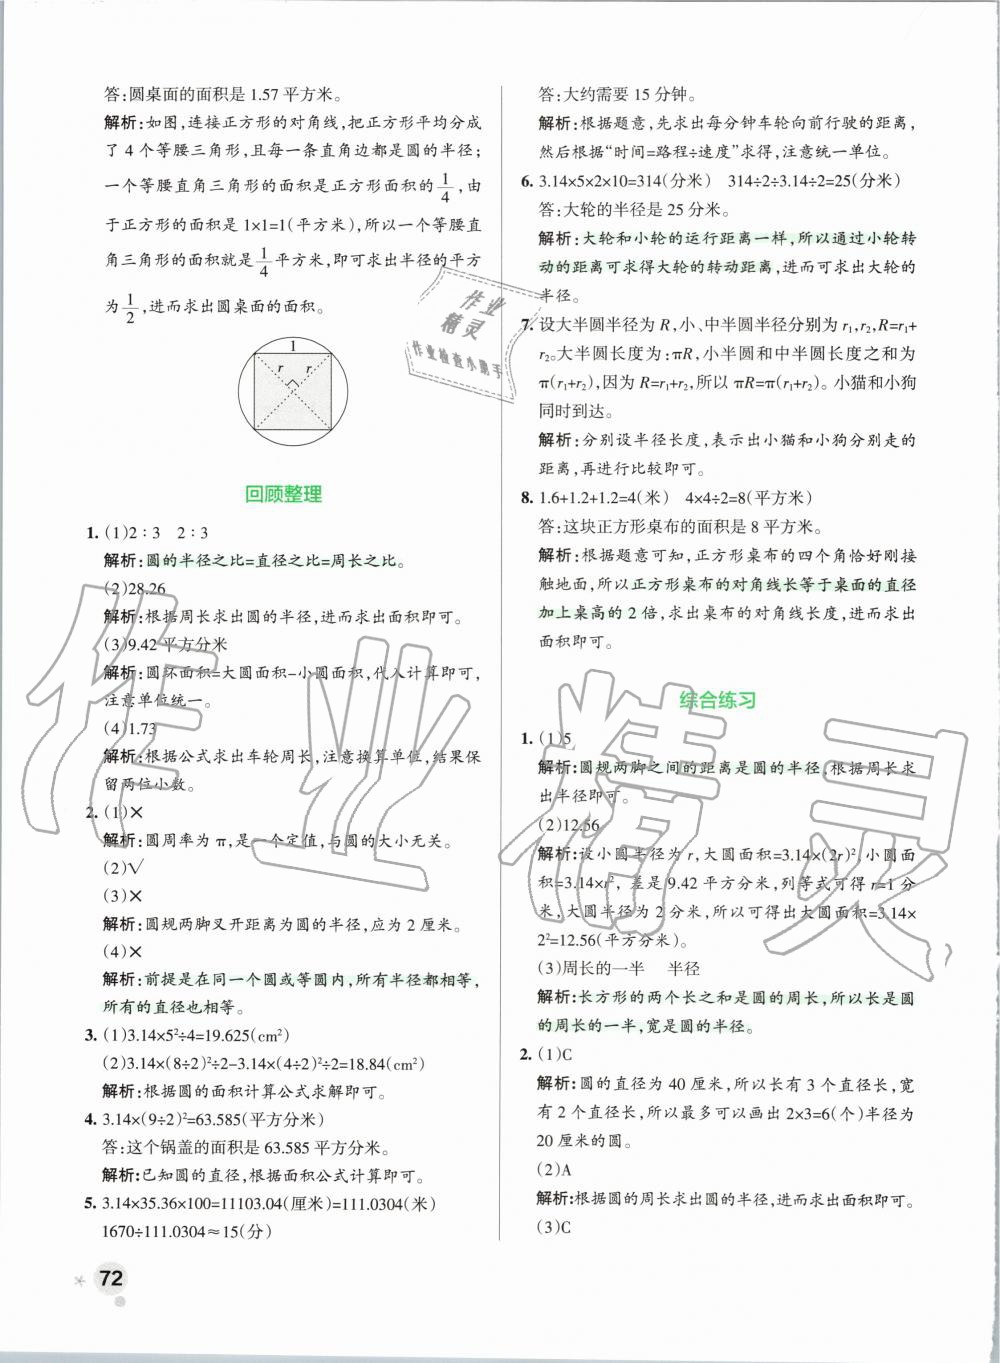 答:圆桌面的面积是 1.57 平方米。
解析:如图,连接正方形的对角线,把正方形平均分成
了 4 个等腰三角形,且每一条直角边都是圆的半径;
一个等腰直角三角形的面积是正方形面积的1/4,由
于正方形的面积是 1×1=1(平方米),所以一个等腰直
角三角形的面积就是1/4平方米,即可求出半径的平方
为1/2,进而求出圆桌面的面积。
1
r r
回顾整理
1. (1)2∶3 2∶3
解析:圆的半径之比=直径之比=周长之比。
(2)28.26
解析:根据周长求出圆的半径,进而求出面积即可。
(3)9.42 平方分米
解析:圆环面积=大圆面积-小圆面积,代入计算即可,
注意单位统一。
(4)1.73
解析:根据公式求出车轮周长,注意换算单位,结果保
留两位小数。
2. (1)×
解析:圆周率为 π,是一个定值,与圆的大小无关。
(2)√
(3)×
解析:圆规两脚叉开距离为圆的半径,应为 2 厘米。
(4)×
解析:前提是在同一个圆或等圆内,所有半径都相等,
所有的直径也相等。
3. (1)3.14×5²÷4=19.625(cm²)
(2)3.14×(8÷2)²÷2-3.14×(4÷2)²÷2=18.84(cm²)
解析:根据圆的面积计算公式求解即可。
4. 3.14×(9÷2)²=63.585(平方分米)
答:这个锅盖的面积是 63.585 平方分米。
解析:已知圆的直径,根据面积公式计算即可。
5. 3.14×35.36×100=11103.04(厘米)=111.0304(米)
1670÷111.0304≈15(分)
72
答:大约需要 15 分钟。
解析:根据题意,先求出每分钟车轮向前行驶的距离,
然后根据“时间=路程÷速度”求得,注意统一单位。
6. 3.14×5×2×10=314(分米) 314÷2÷3.14÷2=25(分米)
答:大轮的半径是 25 分米。
解析:大轮和小轮的运行距离一样,所以通过小轮转
动的距离可求得大轮的转动距离,进而可求出大轮的
半径。
7. 设大半圆半径为 R,小、中半圆半径分别为 r₁,r₂,R=r₁+
r₂。大半圆长度为:πR,小半圆和中半圆长度之和为
π(r₁+r₂),因为 R=r₁+r₂,所以 πR=π(r₁+r₂)。小猫和小狗
同时到达。
解析:分别设半径长度,表示出小猫和小狗分别走的
距离,再进行比较即可。
8. 1.6+1.2+1.2=4(米) 4×4÷2=8(平方米)
答:这块正方形桌布的面积是 8 平方米。
解析:根据题意可知,正方形桌布的四个角恰好刚接
触地面,所以正方形桌布的对角线长等于桌面的直径
加上桌高的 2 倍,求出桌布的对角线长度,进而求出
面积即可。
综合练习
1. (1)5
解析:圆规两脚之间的距离是圆的半径,根据周长求
出半径即可。
(2)12.56
解析:设小圆半径为 r,大圆面积=3.14×(2r)²,小圆面
积=3.14×r²,差是 9.42 平方分米,列等式可得 r=1 分
米,大圆半径为 2 分米,所以可得出大圆面积=3.14×
2²=12.56(平方分米)。
(3)周长的一半 半径
解析:长方形的两个长之和是圆的周长,所以长是圆
的周长的一半,宽是圆的半径。
2. (1)C
解析:圆的直径为 40 厘米,所以长有 3 个直径长,宽
有 2 个直径长,所以最多可以画出 2×3=6(个)半径为
20 厘米的圆。
(2)A
解析:根据圆的周长求出圆的半径,进而求出面积即可。
(3)C
作业
精灵
作业检查小助手
作业精灵